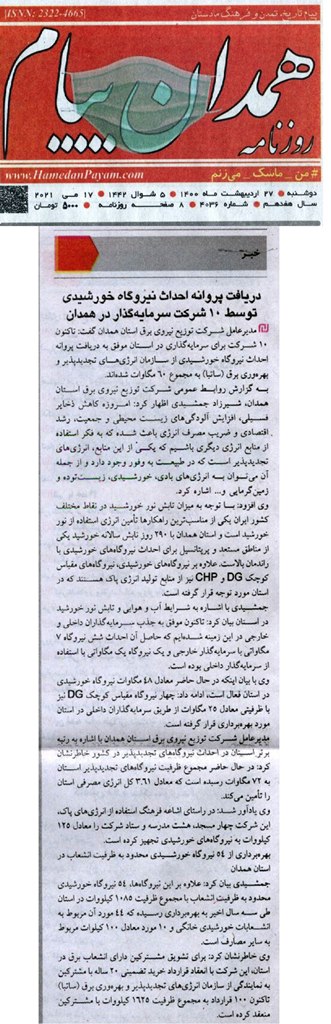 ISNN: 2322-4665
پیام تاریخ، تمدن و فرهنگ مادستان
همدان پیام
روزنامه
www.HamedanPayam.com
#من_ماسک_می‌زنم
دوشنبه ۲۷ اردیبهشت ماه ۱۴۰۰ ۵ شوال ۱۴۴۲ ۱۷ می ۲۰۲۱
سال هفدهم شماره ۴۰۳۶ ۸ صفحه روزنامه ۵۰۰۰ تومان
خبر
دریافت پروانه احداث نیروگاه خورشیدی
توسط ۱۰ شرکت سرمایه‌گذار در همدان
مدیرعامل شرکت توزیع نیروی برق استان همدان گفت: تاکنون
۱۰ شرکت برای سرمایه‌گذاری در استان موفق به دریافت پروانه
احداث نیروگاه خورشیدی از سازمان انرژی‌های تجدیدپذیر و
بهره‌وری برق (ساتبا) به مجموع ۶۰ مگاوات شده‌اند.
به گزارش روابط عمومی شرکت توزیع نیروی برق استان
همدان، شیرزاد جمشیدی اظهار کرد: امروزه کاهش ذخایر
فسیلی، افزایش آلودگی‌های زیست محیطی و جمعیت، رشد
اقتصادی و ضریب مصرف انرژی باعث شده که به فکر استفاده
از منابع انرژی دیگری باشیم که یکی از این منابع، انرژی‌های
تجدیدپذیر است که در طبیعت به وفور وجود دارد و از جمله
آن می‌توان به انرژی‌های بادی، خورشیدی، زیست‌توده و
زمین‌گرمایی و... اشاره کرد.
وی افزود: با توجه به میزان تابش نور خورشید در نقاط مختلف
کشور ایران یکی از مناسب‌ترین راهکارها تأمین انرژی استفاده از نور
خورشید است و استان همدان با ۲۹۰ روز تابش سالانه خورشید یکی
از مناطق مستعد و پرپتانسیل برای احداث نیروگاه‌های خورشیدی با
راندمان بالاست، علاوه بر نیروگاه‌های خورشیدی، نیروگاه‌های مقیاس
کوچک DG و CHP نیز از منابع تولید انرژی پاک هستند که در
استان مورد توجه قرار گرفته است.
جمشیدی با اشاره به شرایط آب و هوایی و تابش نور خورشید
در استان بیان کرد: تاکنون موفق به جذب سرمایه‌گذاران داخلی و
خارجی در این زمینه شده‌ایم که حاصل آن احداث شش نیروگاه ۷
مگاواتی با سرمایه‌گذار خارجی و یک نیروگاه یک مگاواتی با استفاده
از سرمایه‌گذار داخلی بوده است.
وی با بیان اینکه در حال حاضر معادل ۴۸ مگاوات نیروگاه خورشیدی
در استان فعال است، ادامه داد: چهار نیروگاه مقیاس کوچک DG نیز
با ظرفیتی معادل ۲۵ مگاوات از طریق سرمایه‌گذاران داخلی در استان
مورد بهره‌برداری قرار گرفته است.
مدیرعامل شرکت توزیع نیروی برق استان همدان با اشاره به رتبه
برتر استان در احداث نیروگاه‌های تجدیدپذیر در کشور خاطرنشان
کرد: در حال حاضر مجموع ظرفیت نیروگاه‌های تجدیدپذیر استان
به ۷۲ مگاوات رسیده است که معادل ۳.۶۱ کل انرژی مصرفی استان
را تأمین می‌کند.
وی یادآور شد: در راستای اشاعه فرهنگ استفاده از انرژی‌های پاک،
این شرکت چهار مسجد، هشت مدرسه و ستاد شرکت را معادل ۱۲۵
کیلووات به نیروگاه‌های خورشیدی تجهیز کرده است.
بهره‌برداری از ۵۴ نیروگاه خورشیدی محدود به ظرفیت انشعاب در
استان همدان
جمشیدی بیان کرد: علاوه بر این نیروگاه‌ها، ۵۴ نیروگاه خورشیدی
محدود به ظرفیت انشعاب با مجموع ظرفیت ۱۰۸۵ کیلووات در استان
طی سه سال اخیر به بهره‌برداری رسیده که ۴۴ مورد آن مربوط به
انشعابات خورشیدی خانگی و ۱۰ مورد معادل ۱۰۰ کیلوات مربوط
به سایر مصارف است.
وی خاطرنشان کرد: برای تشویق مشترکین دارای انشعاب برق در
استان، این شرکت با انعقاد قرارداد خرید تضمینی ۲۰ ساله با مشترکین
به نمایندگی از سازمان انرژی‌های تجدیدپذیر و بهره‌وری برق (ساتبا)
تاکنون ۱۰۰ قرارداد به مجموع ظرفیت ۱۶۲۵ کیلووات با مشترکین
منعقد کرده است.